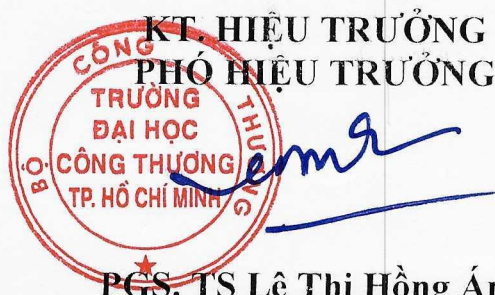 KT. HIỆU TRƯỞNG
PHÓ HIỆU TRƯỞNG
BỘ CÔNG THƯƠNG
TRƯỜNG
ĐẠI HỌC
CÔNG THƯƠNG
TP. HỒ CHÍ MINH
PGS. TS Lê Thị Hồng Án